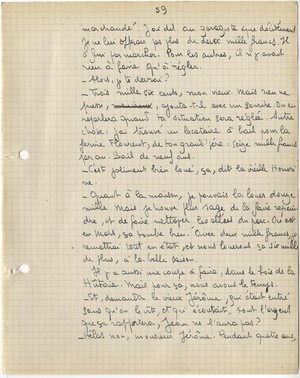 59
marchandé : j'ai dit au garagiste que décidément
je ne lui offrais pas plus de deux mille francs. Il
a fini par marcher. Pour les autres, il n'y avait
rien à faire qu'à régler.
- Alors, je te devrai ?
- Trois mille six cents, mon vieux. Mais rien ne
presse, ajouta-t-il avec un sourire. On en
reparlera quand ta situation sera réglée. Autre
chose : j'ai trouvé un locataire à bail pour la
ferme. Flourent, de ton grand'père : seize mille francs
par an. Bail de neuf ans.
- C'est joliment bien loué, ça, dit la vieille Honori-
ne.
- Quant à la maison, je pouvais la louer douze
mille. Mais je trouve plus sage de la faire repein-
dre, et de faire nettoyer les allées du parc. On est
en mars, ça tombe bien. Avec deux mille francs, je
remettrai tout en état, et nous louerons ça six mille
de plus, à la belle saison.
Il y a aussi une coupe à faire, dans le bois de la
Mais pour ça, nous avons le temps.
- Et, demanda le vieux Jérôme, qui était entré
sans qu'on le vît, et qui écoutait, tout l'argent
que ça rapportera, Jean ne l'aura pas ?
- Hélas non, monsieur Jérôme. Pendant quatre ans,